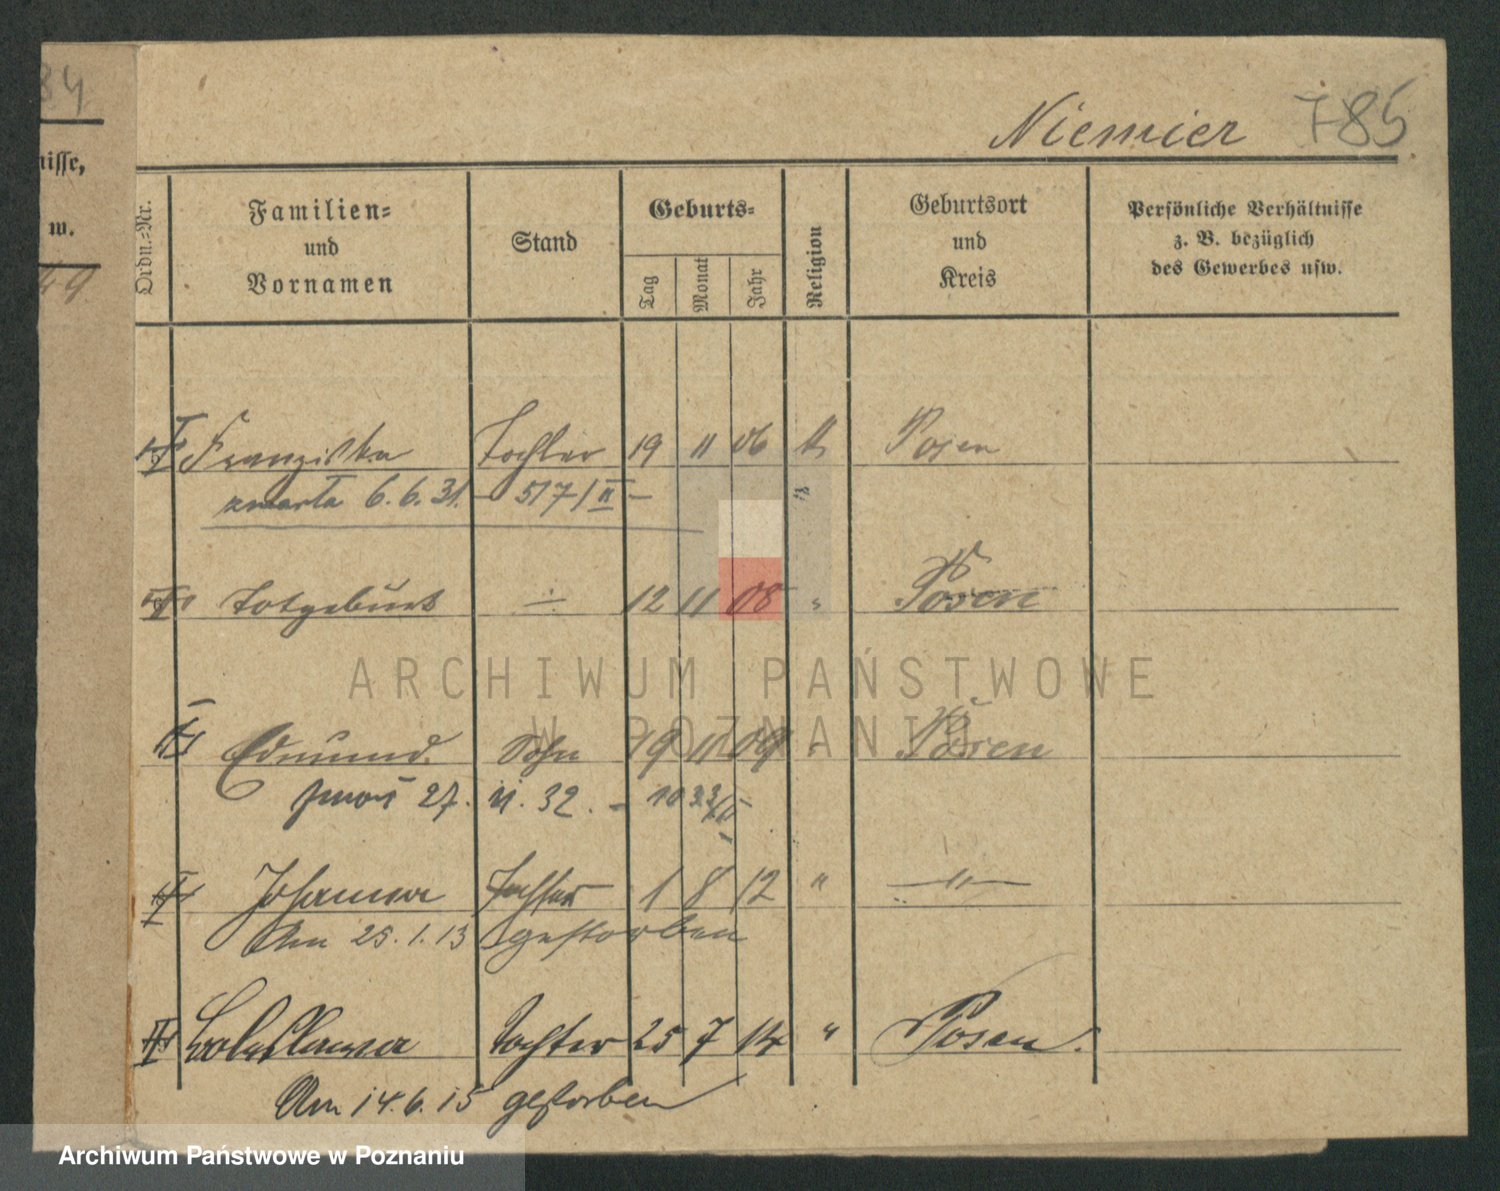 84
nisse,
w.
49
Niemier 785
Ordn.-Nr.
Familien-
und
Vornamen
Stand
Geburts-
Tag
Monat
Jahr
Religion
Geburtsort
und
Kreis
Persönliche Verhältnisse
z. B. bezüglich
des Gewerbes usw.
Franziska Tochter 19 11 06 k Posen
zmarła 6.6.31. – 517/II –
Totgeburt ÷ 12 11 08 " Posen
ARCHIWUM PAŃSTWOWE
W POZNANIU
Edmund Sohn 19 11 09 " Posen
zmarł 27. 11. 32. – 1033/II
Johanna Tochter 1 8 12 " — " —
Am 25.1.13 gestorben
Boleslawa Tochter 25 7 14 " Posen.
Am 14.6.15 gestorben
Archiwum Państwowe w Poznaniu